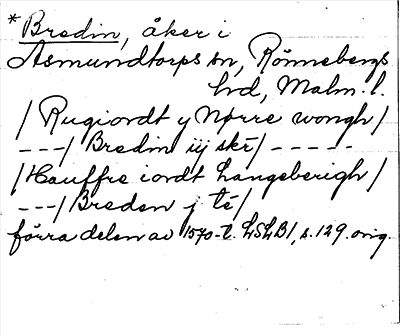 * Bredin, åker i
Asmundtorps sn, Rönnebergs
hd, Malm. l.
/ Rugiordt y Nørre wongh /
---/ Bredin iij skr̄ / -----
/ Hauffre iordt Langeberigh /
---/ Breden j tē /
förra delen av 1570-t. LSLB1, s. 129. orig.